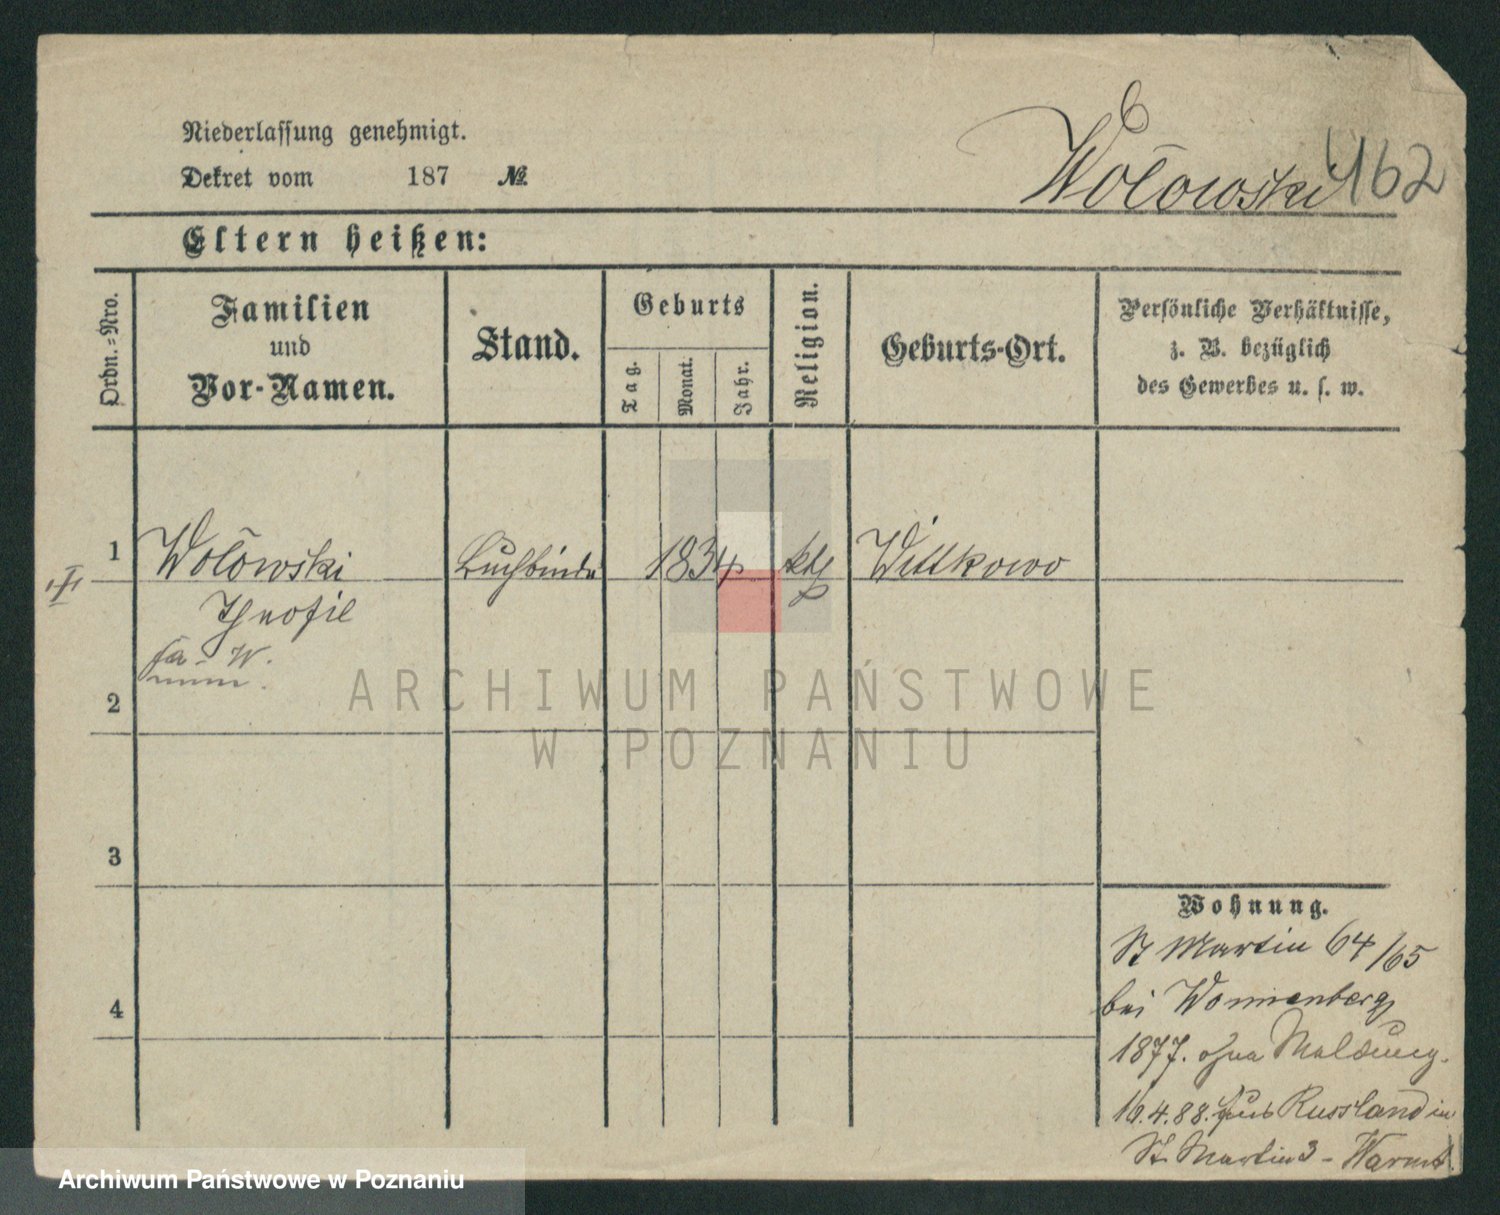 Niederlassung genehmigt.
Dekret vom 187 №
Wołowski 462
Eltern heißen:
Ordn.-Nro.
Familien
und
Vor-Namen.
Stand.
Geburts
Tag.
Monat.
Jahr.
Religion.
Geburts-Ort.
Persönliche Verhältnisse,
z. B. bezüglich
des Gewerbes u. s. w.
1 Wołowski Buchbinder 1834 kth Wittkowo
Theofil
2
3
4
Wohnung.
St Martin 64/65
bei Wonnenberg
1877. ohne Meldung.
10.4.88. aus Russland in
St. Martin 3 -
ARCHIWUM PAŃSTWOWE
W POZNANIU
Archiwum Państwowe w Poznaniu